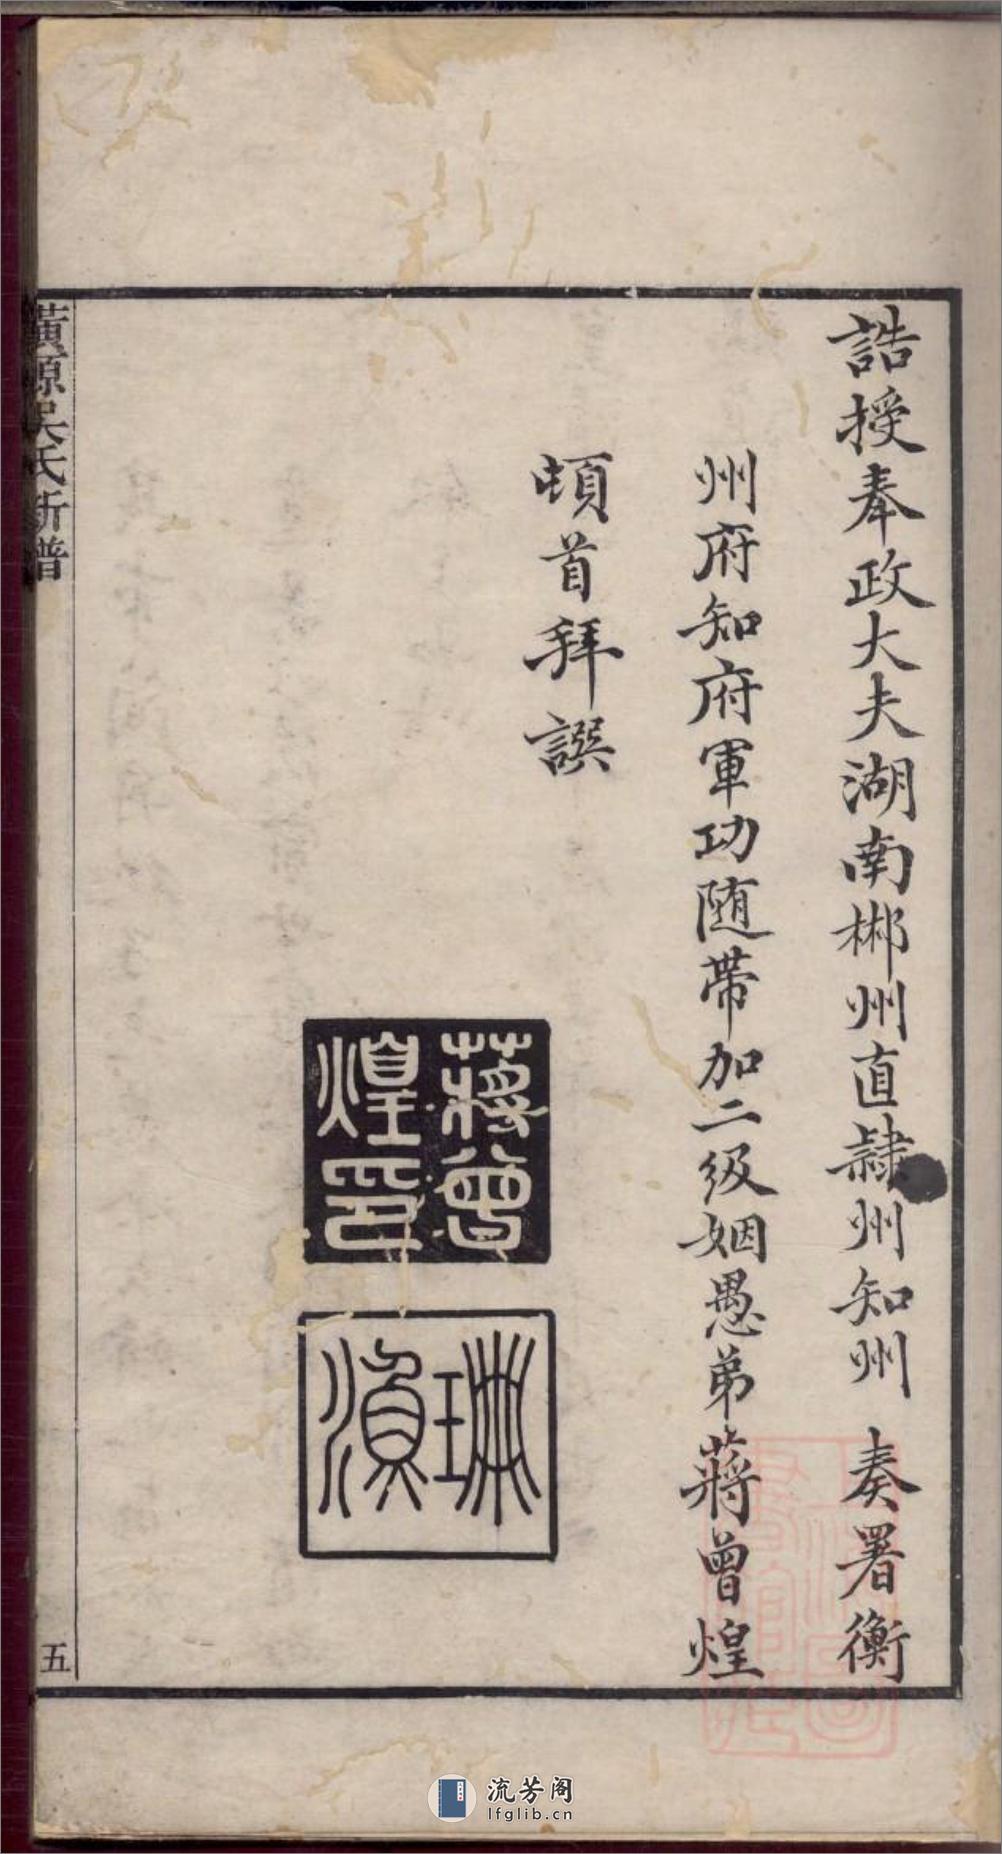 誥授奉政大夫湖南郴州直隸州知州 奏署衡
州府知府軍功随帶加二级姻愚弟蔣曾煌
頓首拜譔
蔣曾煌印
琳濵
黃源吳氏新譜
五
流芳阁
lfglib.cn